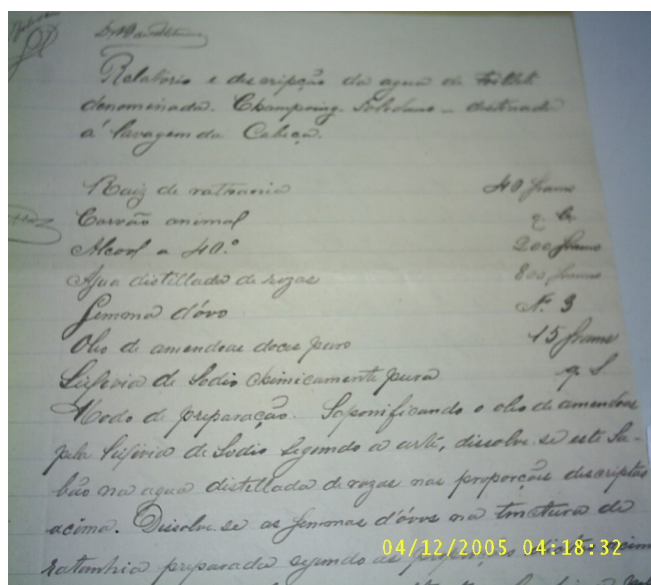 Relatorio e descripção da agua de Toillete
denominada. Champoing Soledano - destinada
á lavagem da Cabeça.
Raiz de rathania 40 grams
Carvão animal q. b.
Alcool a 40.º 200 grams
Agua distillada de rozas 800 grams
Gemma d'ovo N. 3
Oleo de amendoas doces puro 15 grams
Lixivia de Sodio chimicamente pura q. S.
Modo de preparação. Saponificando o oleo de amendoas
pela lixivia de Sodio segundo a arte, dissolve-se este Sa-
bão na agua distillada de rozas nas proporções descriptas
acima. Dissolve-se as gemmas d'ovos na tinctura de
ratanhia preparada segundo
04/12/2005 04:18:32